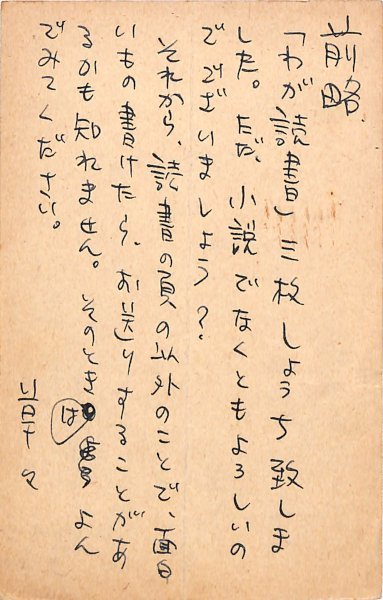 前略
「わが読書」三枚しようち致しま
した。ただ、小説でなくともよろしいの
でございましよう?
それから、読書の頁の以外のことで、面白
いもの書けたら、お送りすることがあ
るかも知れません。そのときは よん
でみてください。
草々